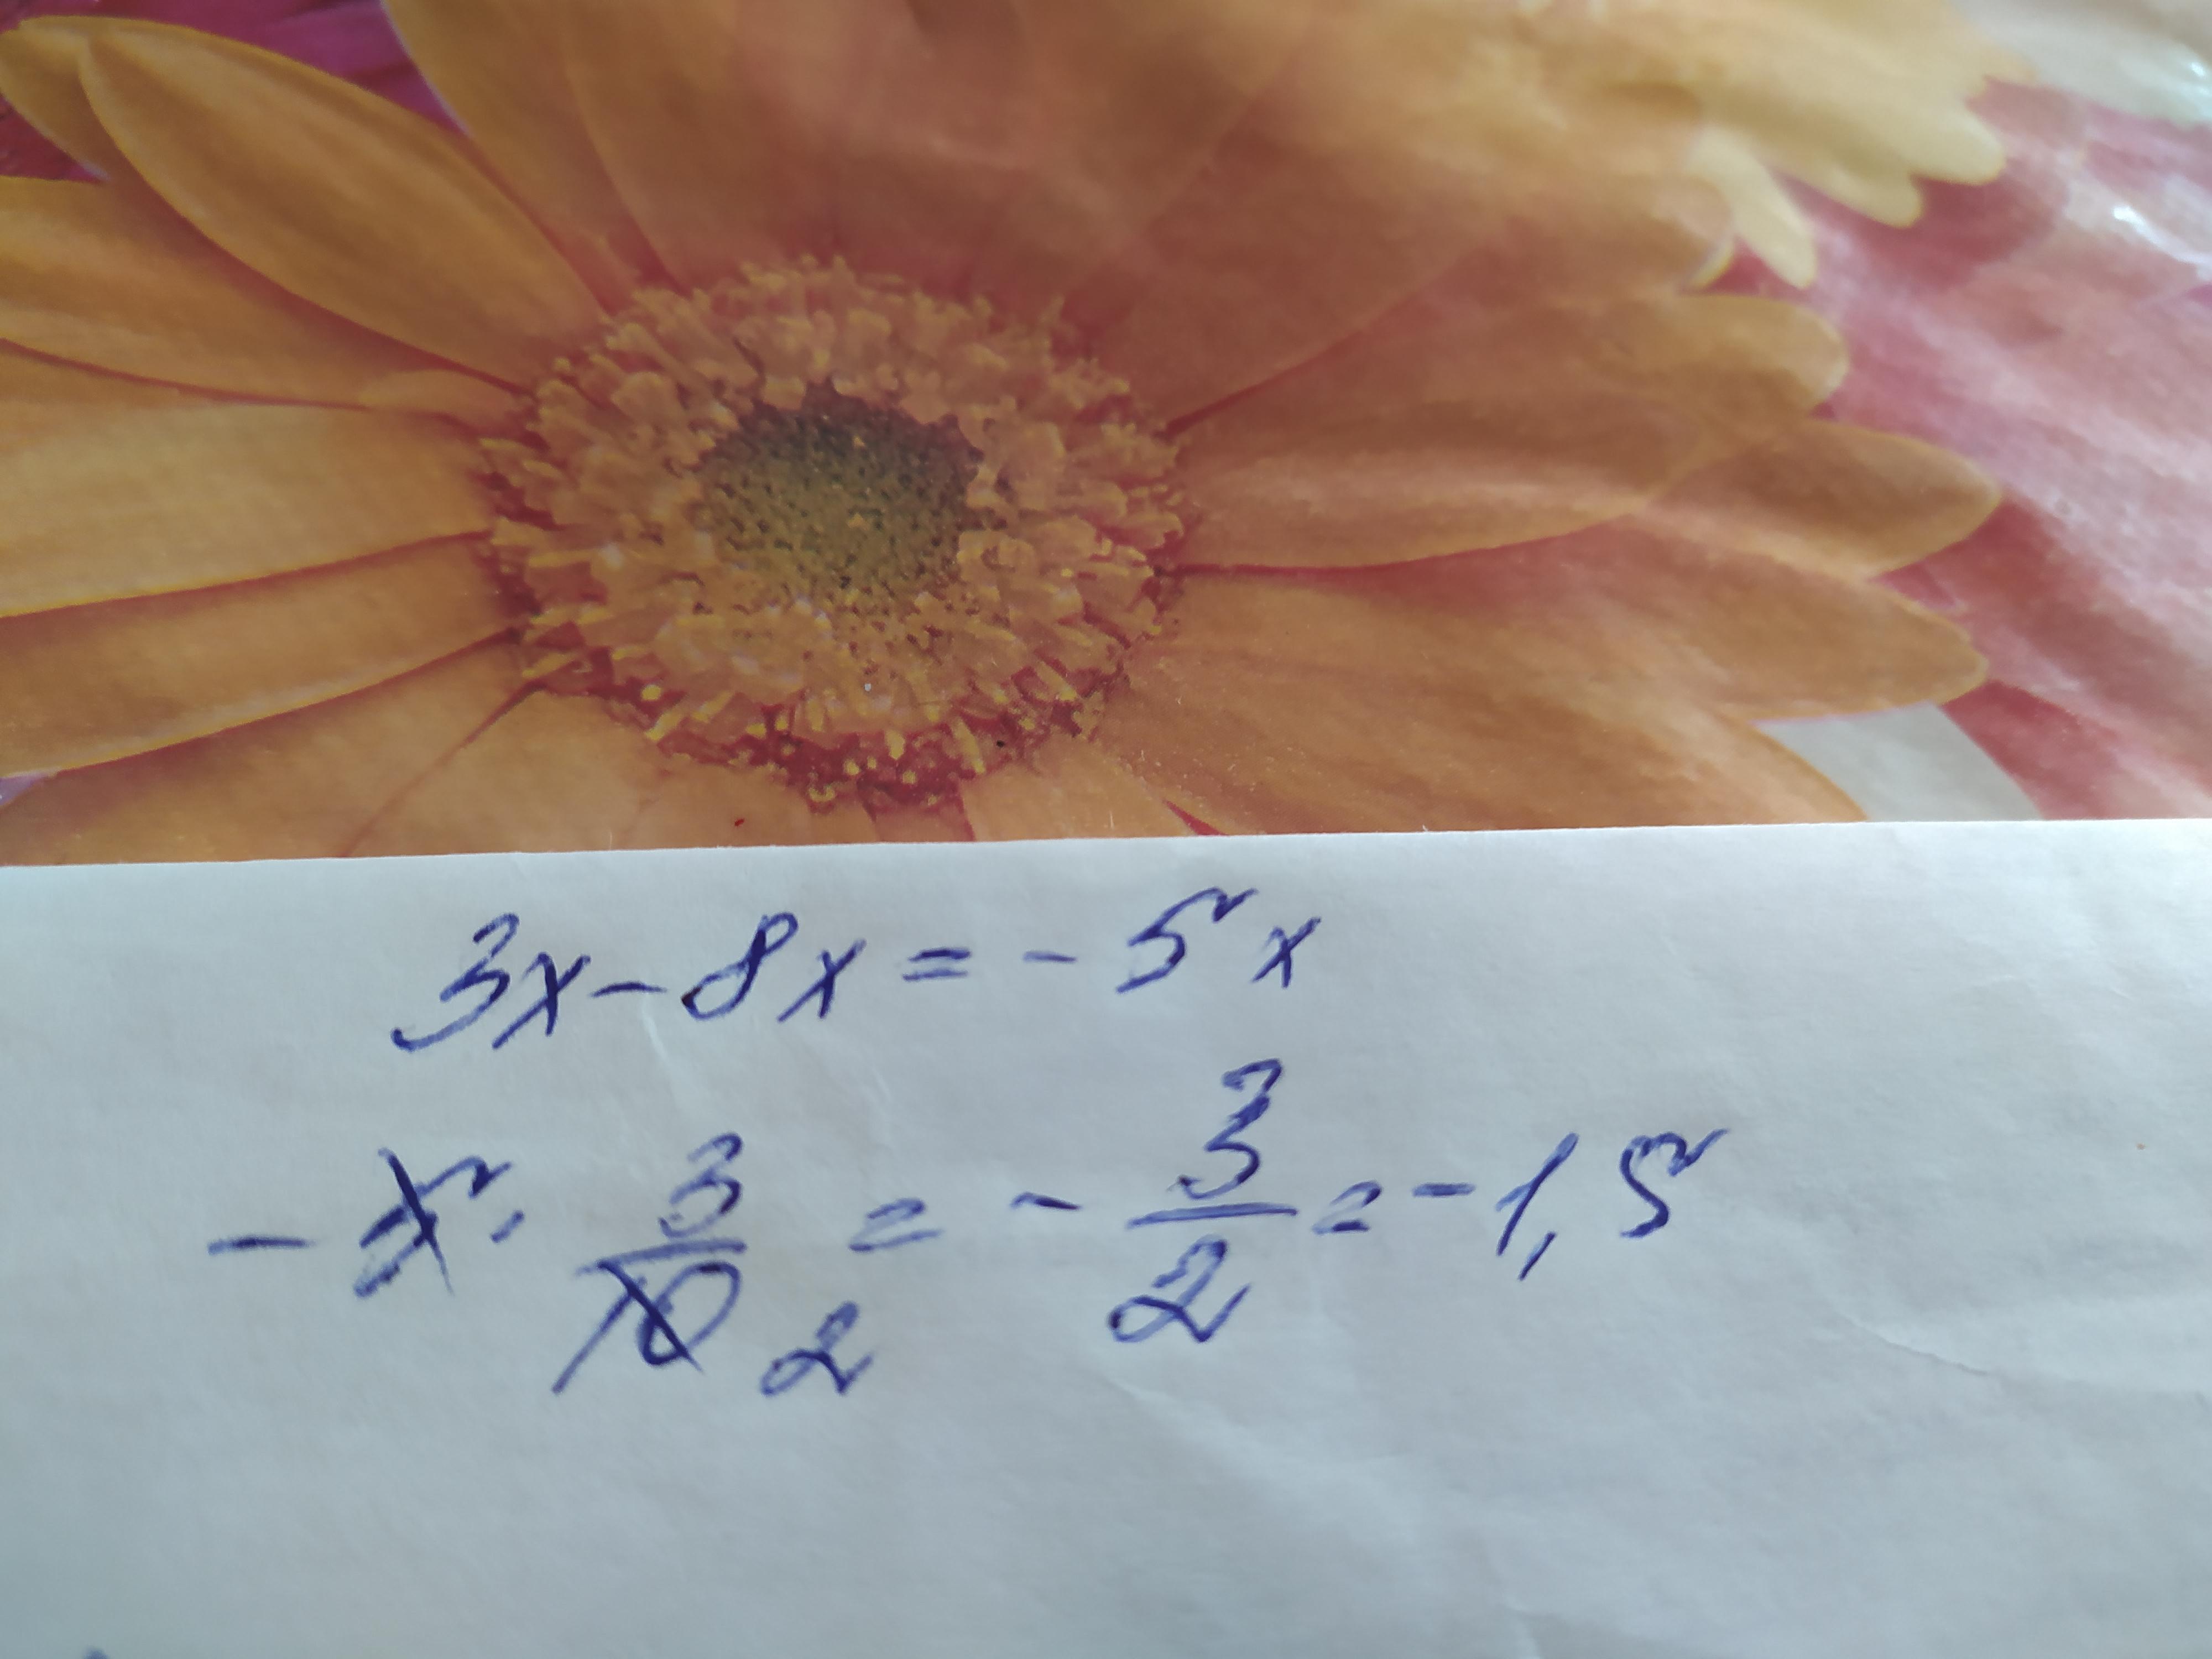 3x-8x=-5x
-5·3/10 2=-3/2=-1,5